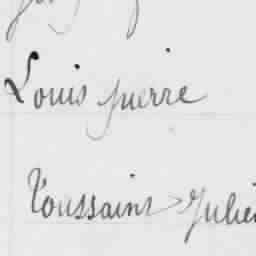 Louis pierre
Toussaint Julien